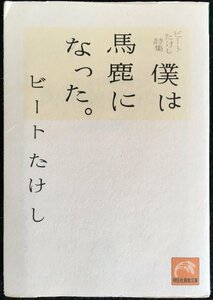 ビートたけし詩集
僕は
馬鹿に
なった。
ビートたけし
祥伝社黄金文庫